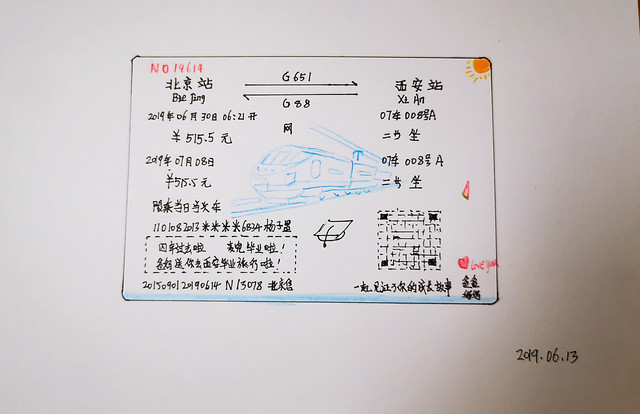 NO 19614
北京站 G651 西安站
Bei Jing G88 Xi An
2019年06月30日 06:21开 07车008号A
¥515.5元 网 二等坐
2019年07月08日 07车008号A
¥515.5元 二等坐
限乘当日当次车
110108 2013 6834
四年过去啦 毕业啦!
送你去西安毕业旅行啦!
20150901 20190614 N13078
一起见证了你的成长故事
爸爸
妈妈
love you
2019.06.13